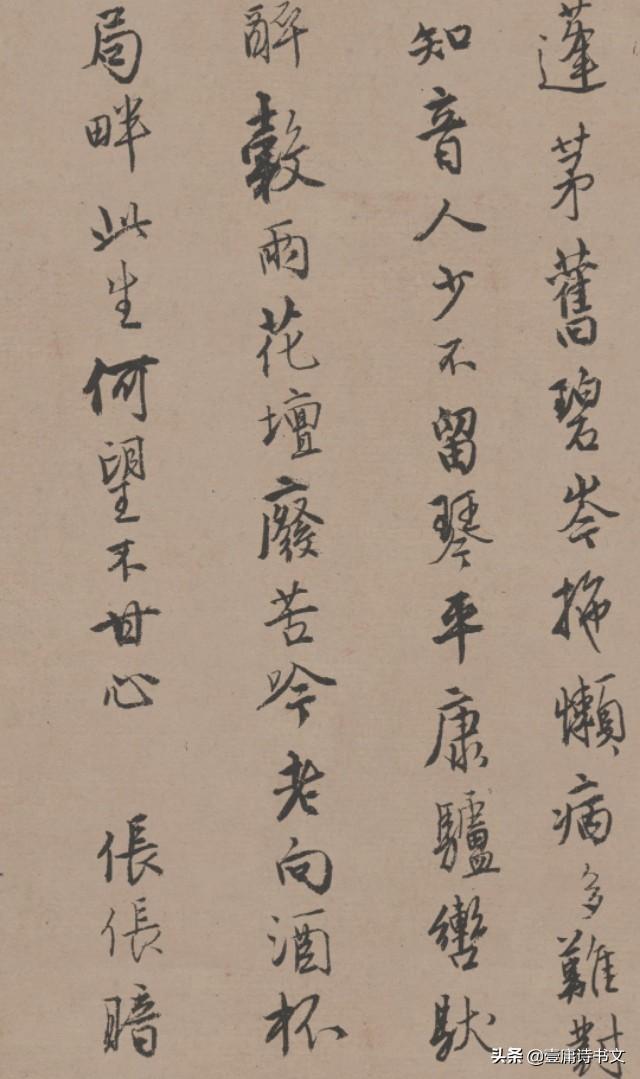 蓬茅舊碧岑拖懶病多難對
知音人少不留琴平康驢轡馱
醉穀雨花壇廢苦吟老向酒杯
局畔此生何望不甘心 倀倀暗
头条 @壹庸诗书文